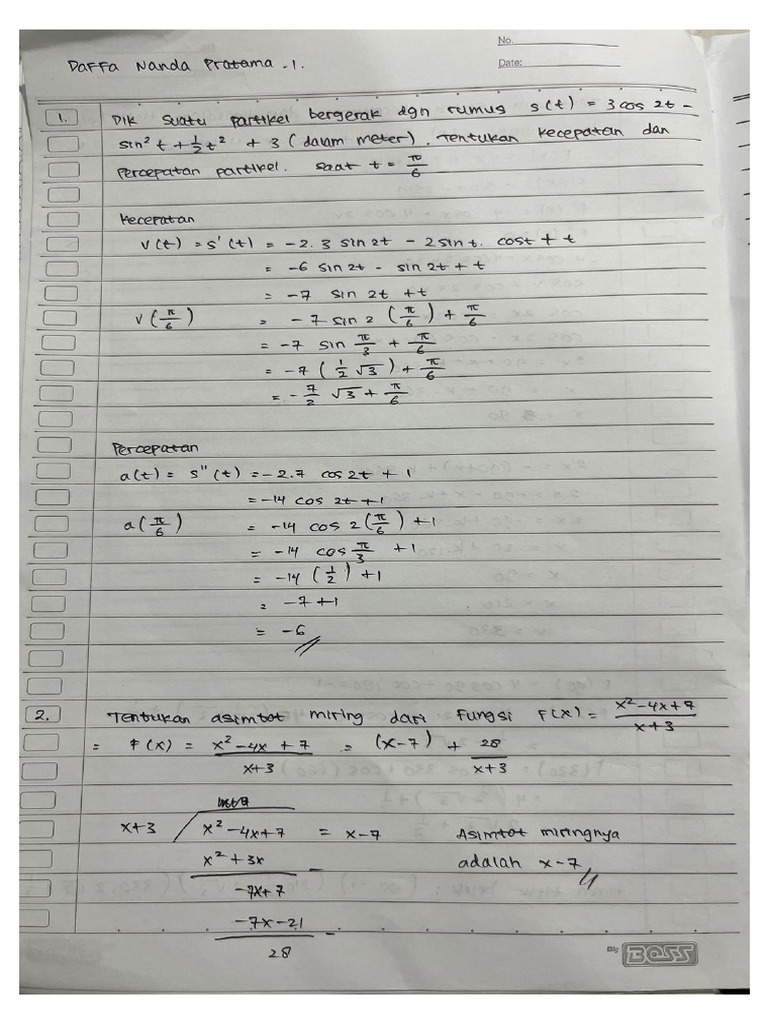 No.
Daffa Nanda Pratama -1.
Date:
1. Dik suatu partikel bergerak dgn rumus s(t) = 3 cos 2t -
sin² t + 1/2 t² + 3 (dalam meter). Tentukan kecepatan dan
percepatan partikel. saat t = π/6
Kecepatan
v(t) = s'(t) = -2. 3 sin 2t - 2 sin t. cos t + t
= -6 sin 2t - sin 2t + t
= -7 sin 2t + t
v(π/6) = -7 sin 2 (π/6) + π/6
= -7 sin π/3 + π/6
= -7 (1/2 √3) + π/6
= -7/2 √3 + π/6
Percepatan
a(t) = s"(t) = -2.7 cos 2t + 1
= -14 cos 2t + 1
a(π/6) = -14 cos 2 (π/6) + 1
= -14 cos π/3 + 1
= -14 (1/2) + 1
= -7 + 1
= -6 //
2. Tentukan asimtot miring dari fungsi F(x) = x² - 4x + 7 / x+3
= F(x) = x² - 4x + 7 / x+3 = (x-7) + 28 / x+3
x+3 / x² - 4x + 7 = x-7 Asimtot miringnya
x² + 3x - adalah x-7 //
-7x + 7
-7x - 21 -
28
BOSS